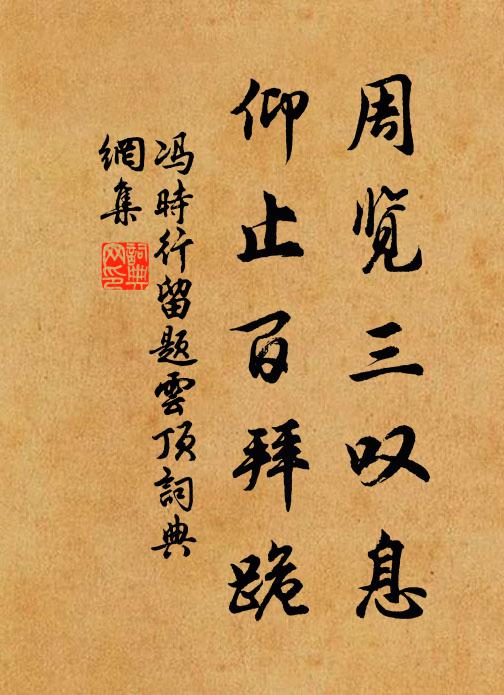 周览三叹息
仰止百拜跪
冯時行留题雲顶詞典
網集
詞典
网印